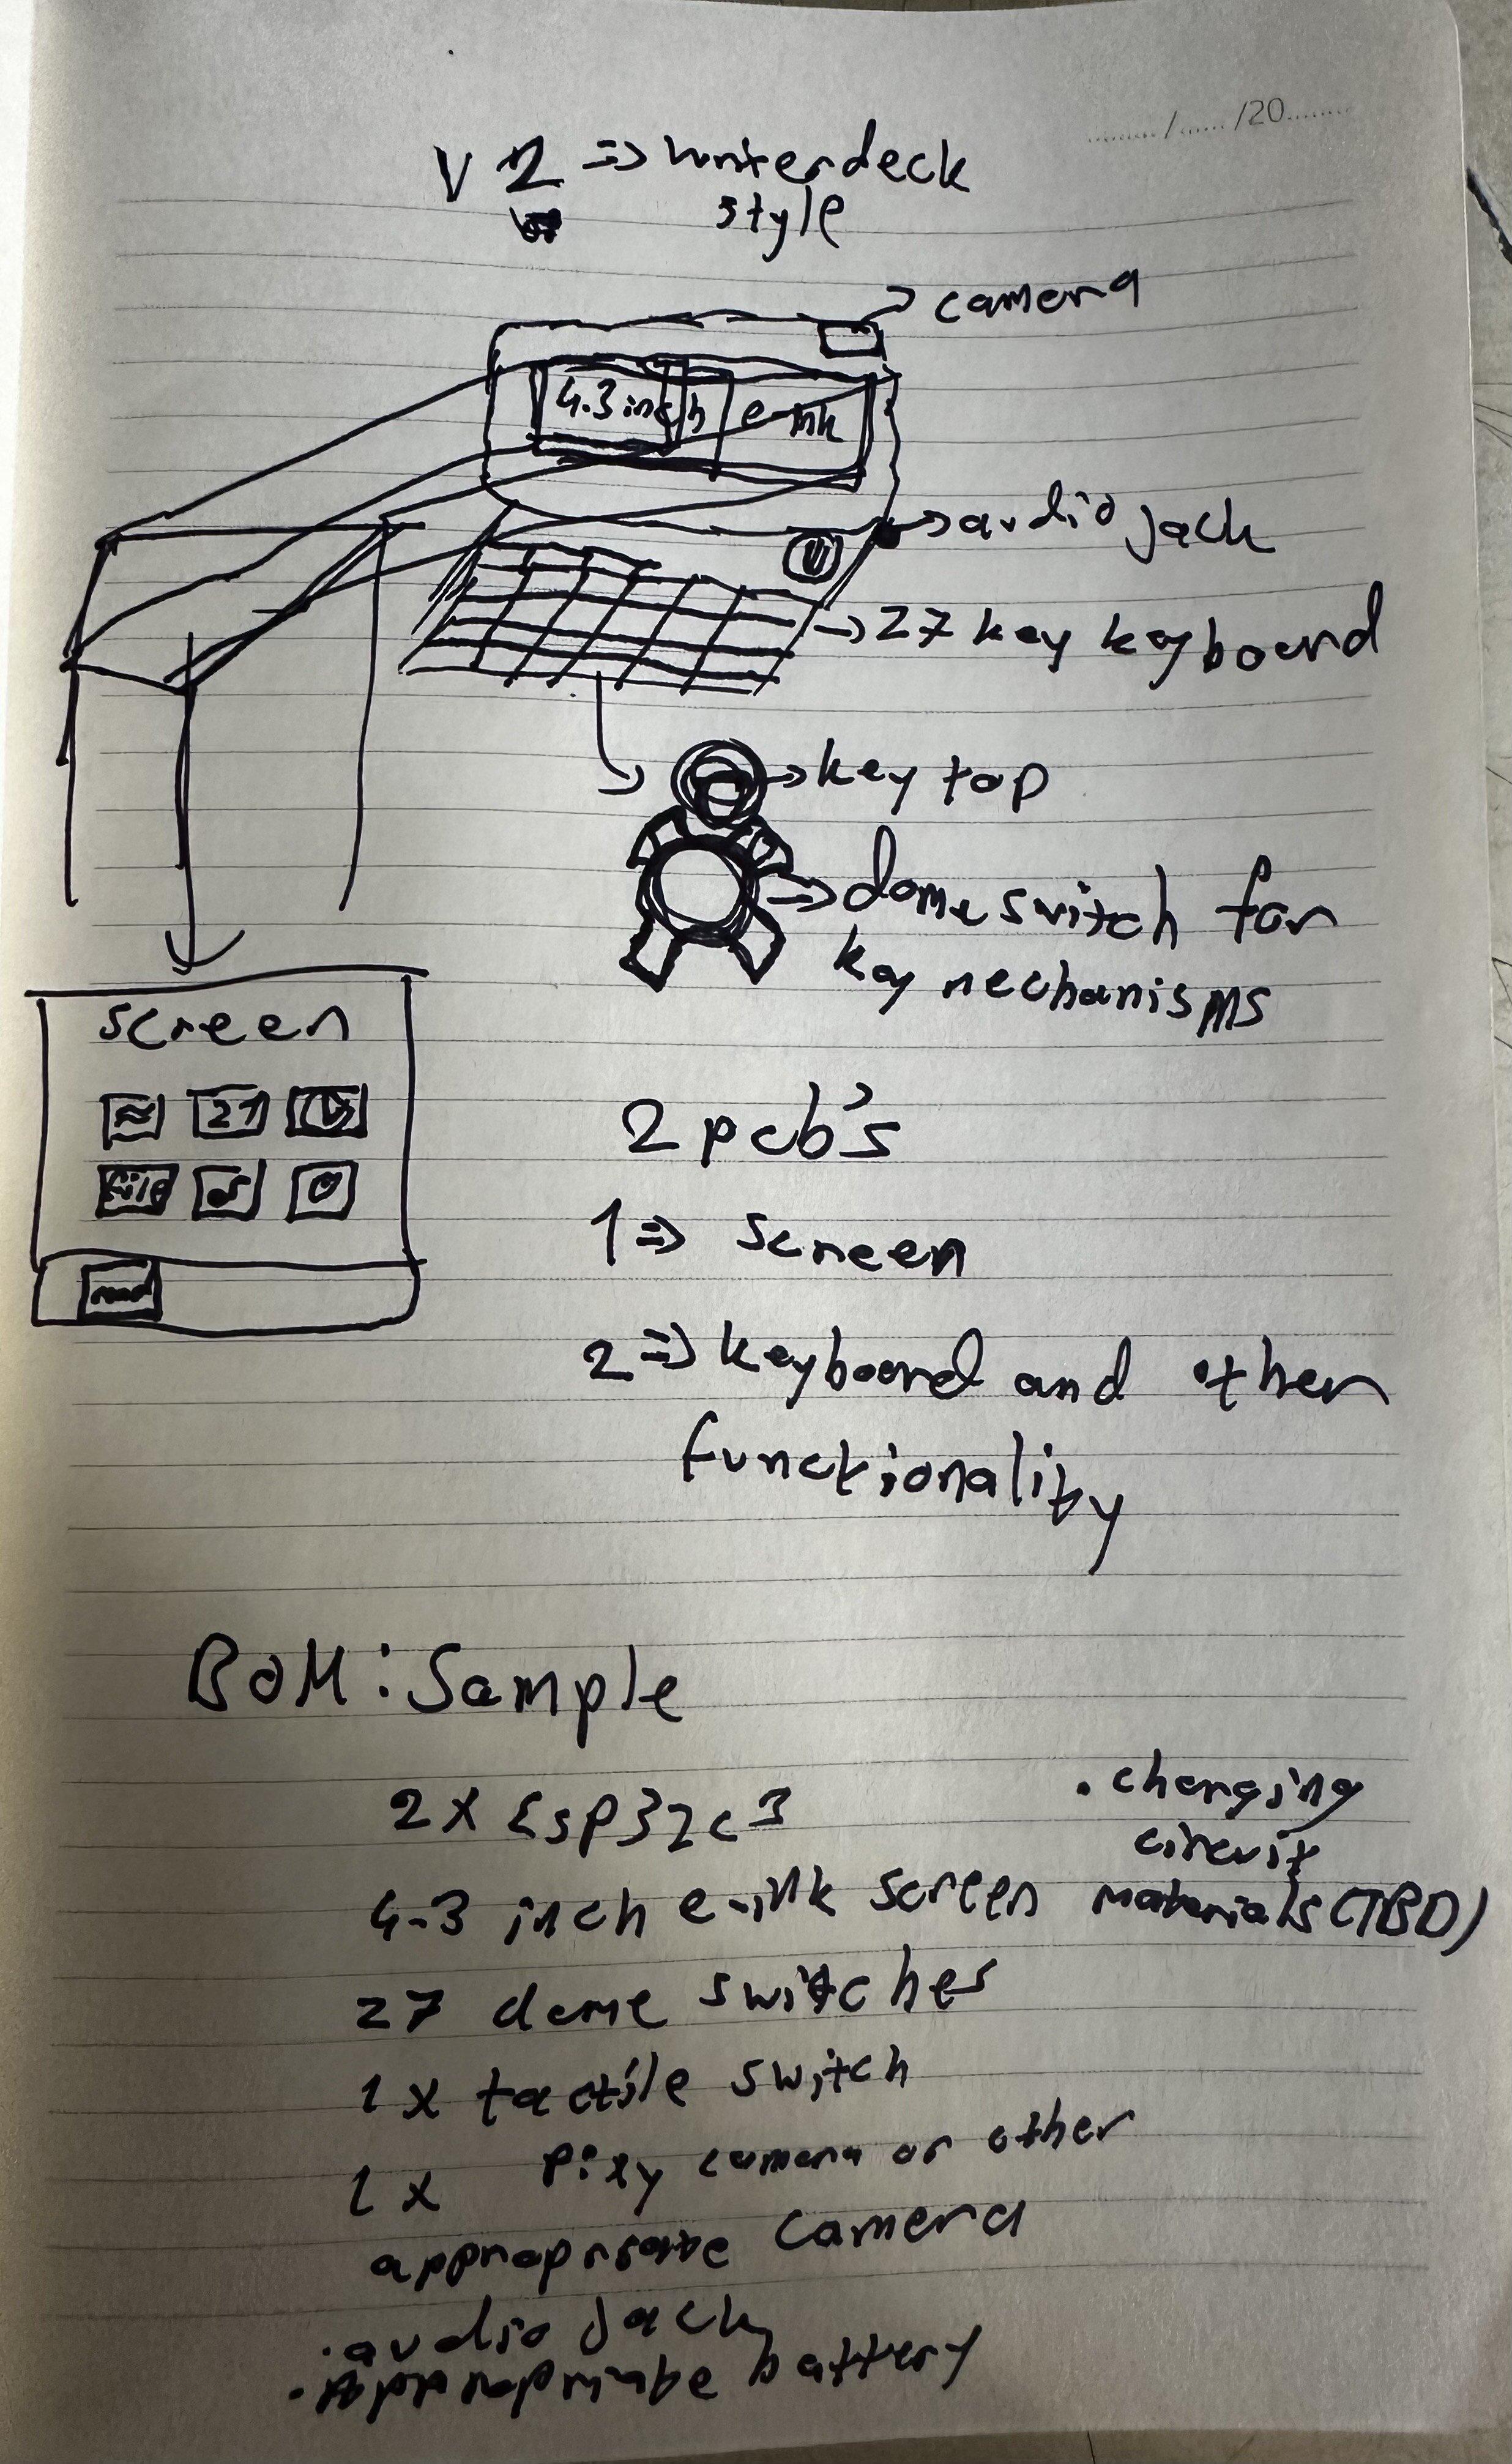 / /20
V2 => writerdeck
style
camera
4.3 inch e-ink
audio jack
27 key keyboard
key top
dome switch for
key mechanisms
screen
21
file
read
2 pcb's
1 => screen
2 => keyboard and other
functionality
BOM: Sample
2x Esp32c3
4.3 inch e-ink screen
27 dome switches
1x tactile switch
1x Pixy camera or other
appropriate camera
. audio jack
. Appropriate battery
. charging
circuit
materials (TBD)